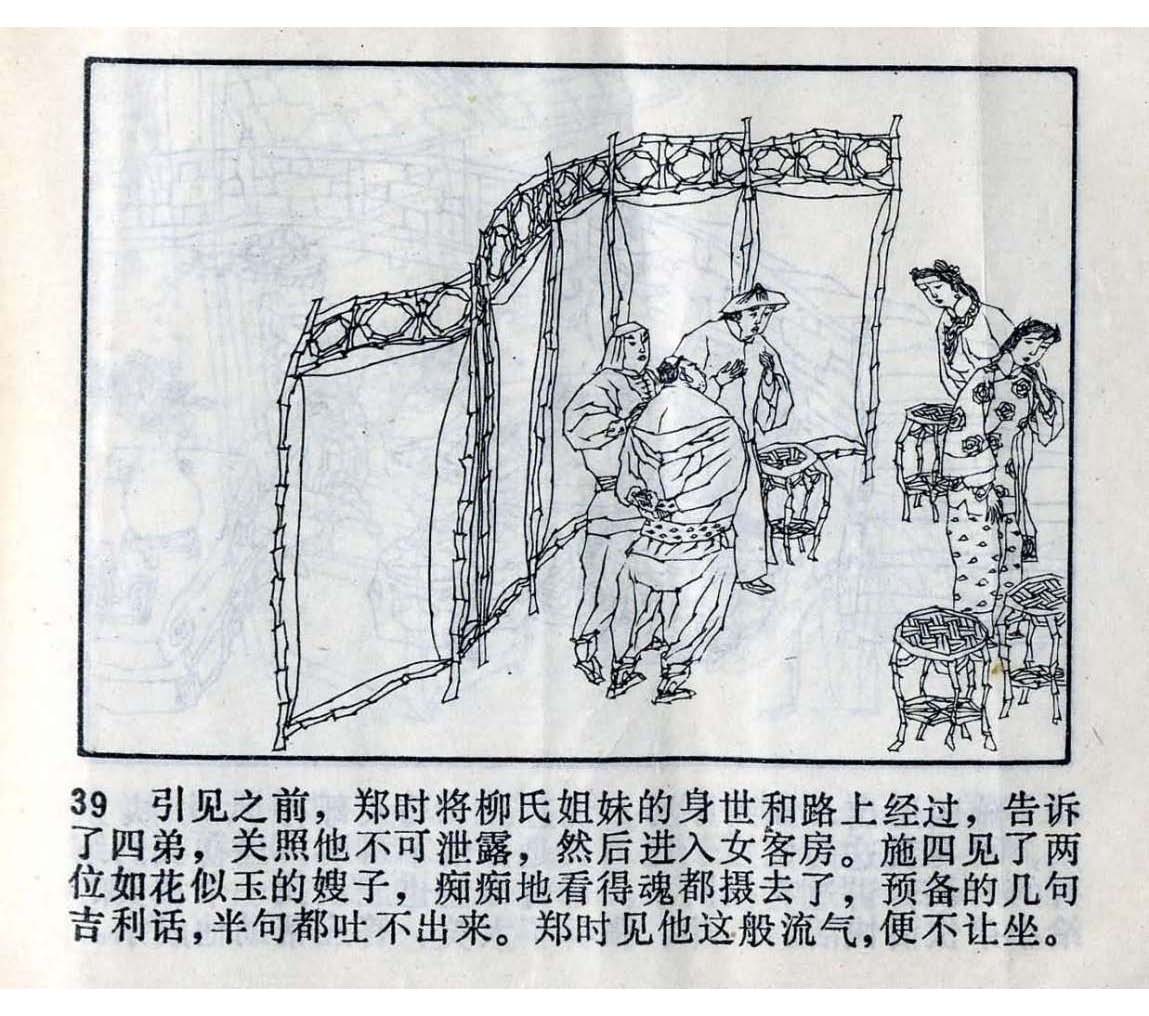 39 引见之前，郑时将柳氏姐妹的身世和路上经过，告诉
了四弟，关照他不可泄露，然后进入女客房。施四见了两
位如花似玉的嫂子，痴痴地看得魂都摄去了，预备的几句
吉利话，半句都吐不出来。郑时见他这般流气，便不让坐。